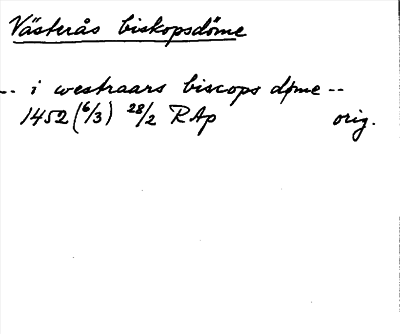 Västerås biskopsdöme
-- i westraars biscops døme --
1452 (6/3) 28/2 RAp orig.